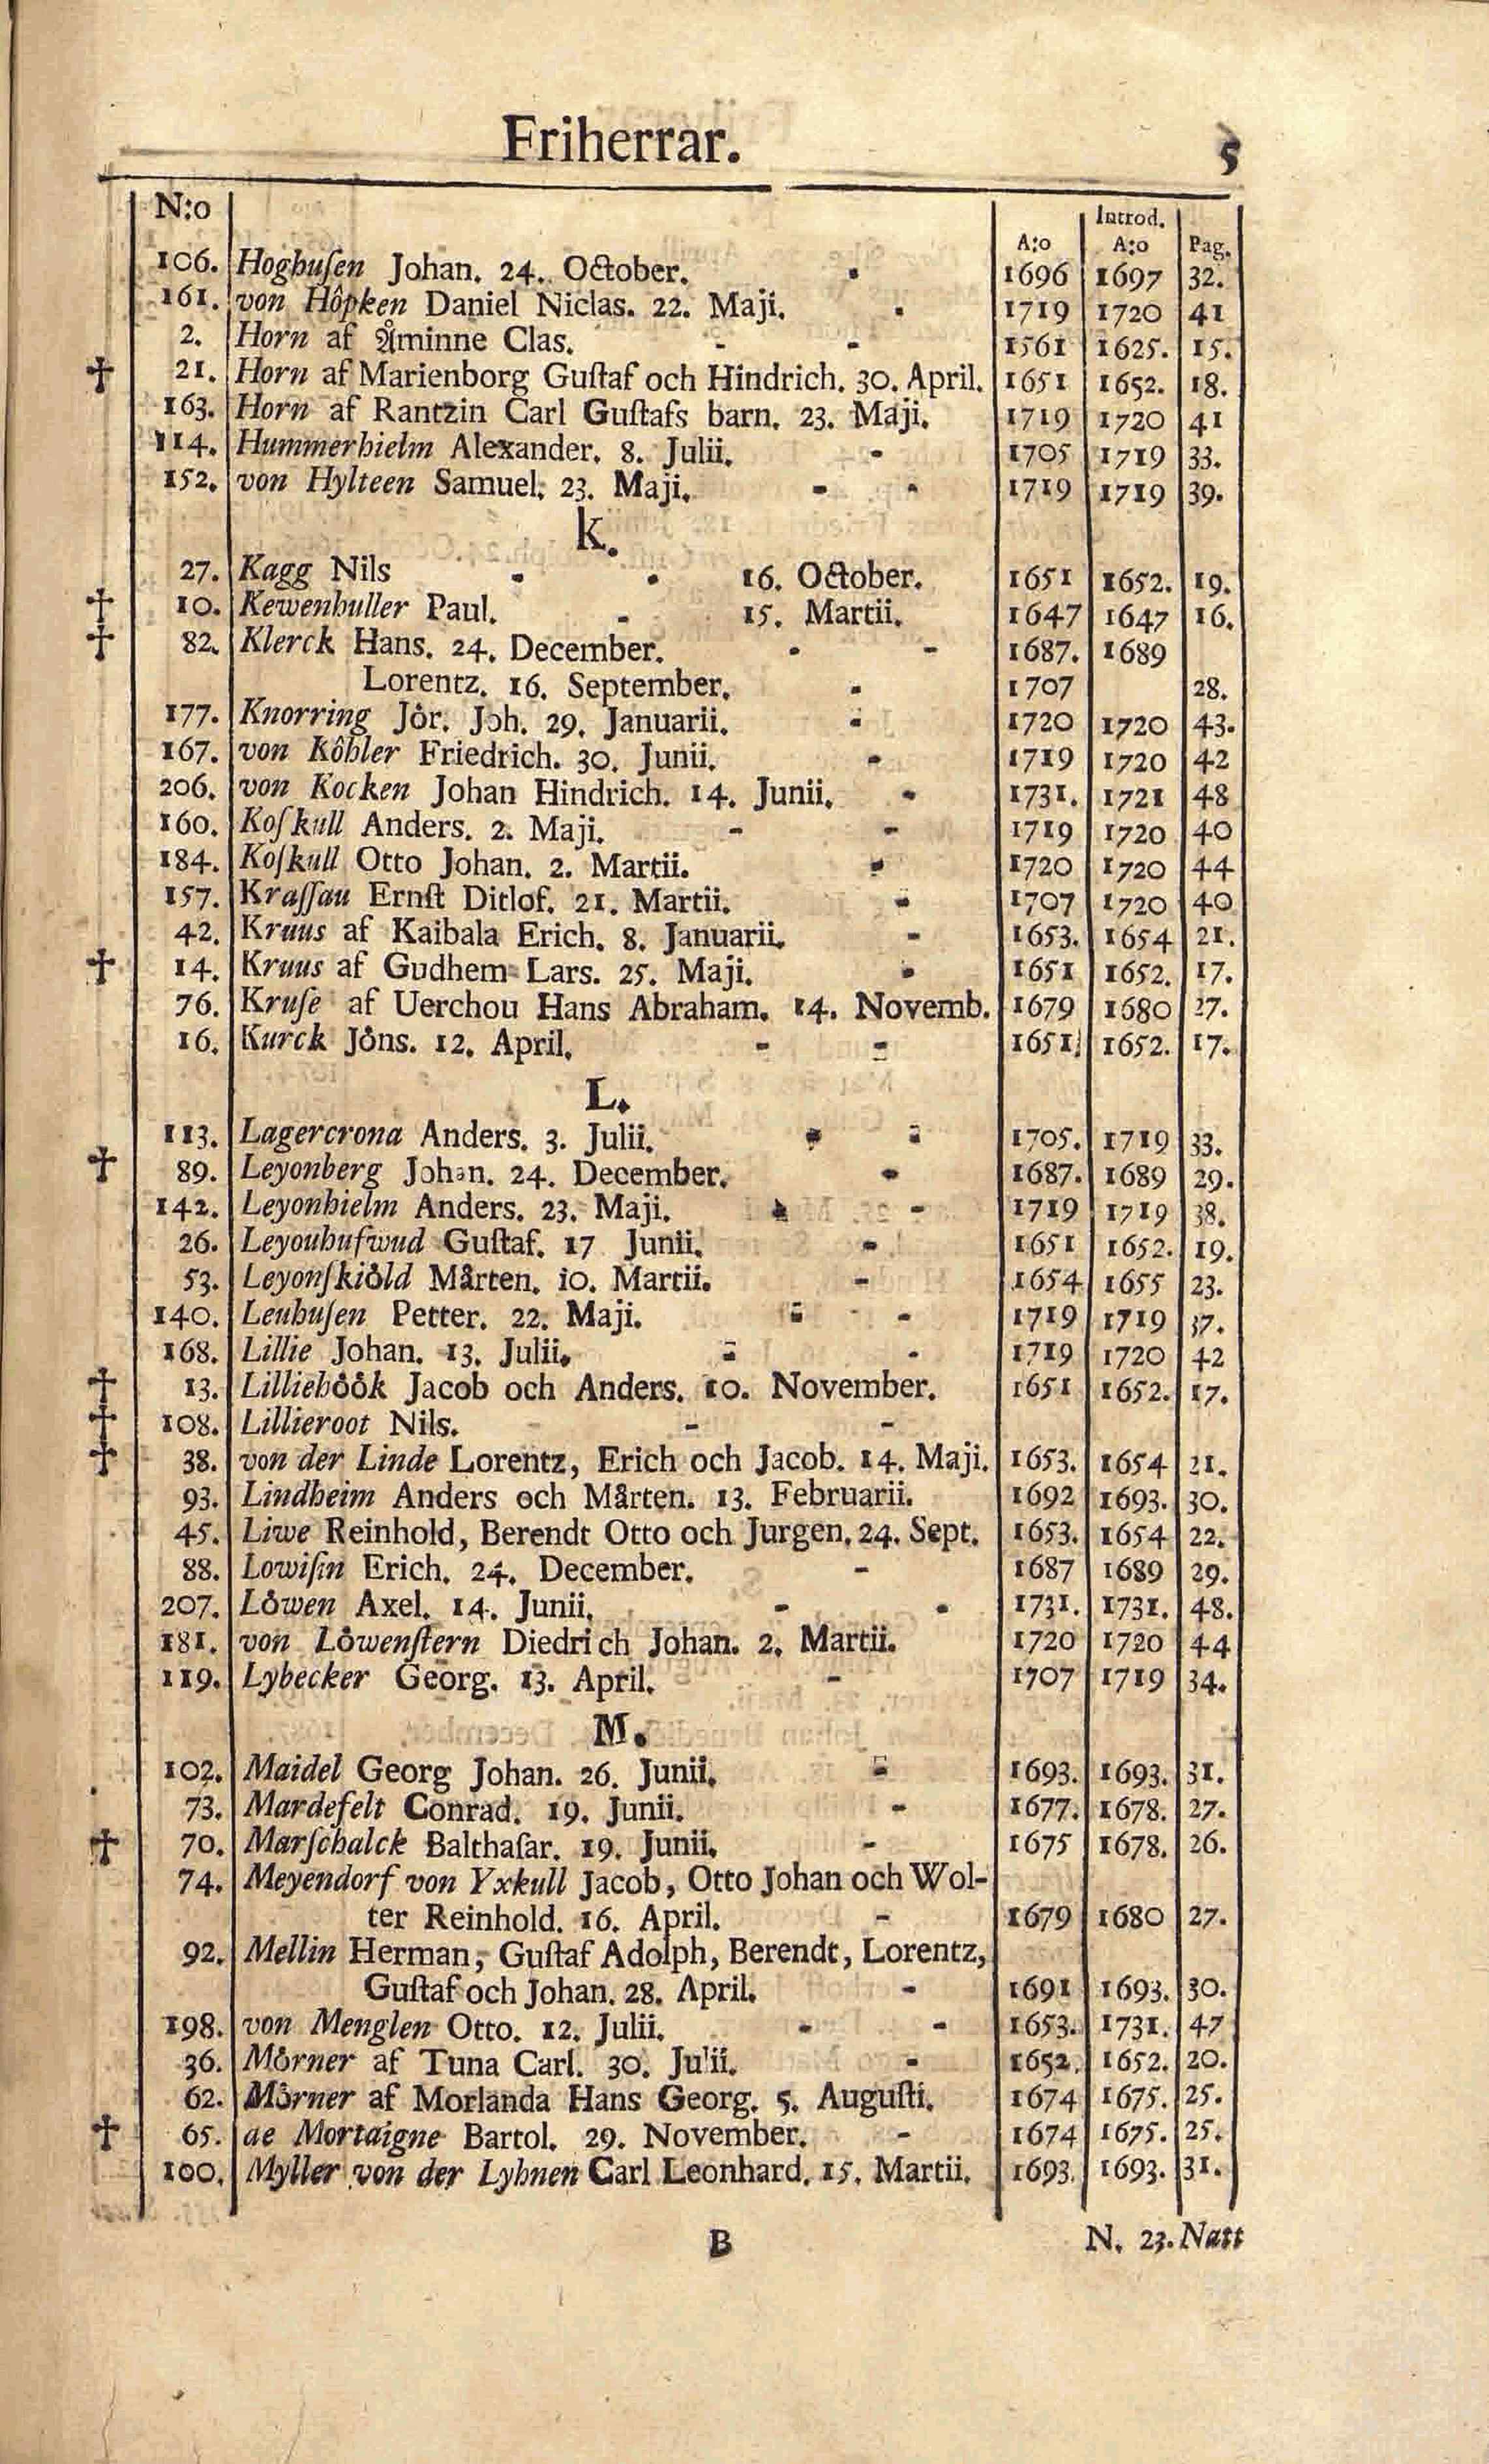 Friherrar. 5
N:o A:o Introd. A:o Pag.
106. Hoghuſen Johan. 24. October. 1696 1697 32.
161. von Hôpken Daniel Niclas. 22. Maji. 1719 1720 41
2. Horn af Åminne Clas. 1561 1625. 15.
† 21. Horn af Marienborg Guſtaf och Hindrich. 30. April. 1651 1652. 18.
163. Horn af Rantzin Carl Guſtafs barn. 23. Maji. 1719 1720 41
114. Hummerhielm Alexander. 8. Julii. 1705 1719 33.
152. von Hylteen Samuel. 23. Maji. 1719 1719 39.
K.
27. Kagg Nils 16. October. 1651 1652. 19.
† 10. Kewenhuller Paul. 15. Martii. 1647 1647 16.
† 82. Klerck Hans. 24. December. 1687. 1689
Lorentz. 16. September. 1707 28.
177. Knorring Jôr. Joh. 29. Januarii. 1720 1720 43.
167. von Kôhler Friedrich. 30. Junii. 1719 1720 42
206. von Kocken Johan Hindrich. 14. Junii. 1731. 1721 48
160. Koſkull Anders. 2. Maji. 1719 1720 40
184. Koſkull Otto Johan. 2. Martii. 1720 1720 44
157. Kraſſau Ernſt Ditlof. 21. Martii. 1707 1720 40
42. Kruus af Kaibala Erich. 8. Januarii. 1653. 1654 21.
† 14. Kruus af Gudhem Lars. 25. Maji. 1651 1652. 17.
76. Kruſe af Uerchou Hans Abraham. 14. Novemb. 1679 1680 27.
16. Kurck Jôns. 12. April. 1651 1652. 17.
L.
113. Lagercrona Anders. 3. Julii. 1705. 1719 33.
† 89. Leyonberg Johan. 24. December. 1687. 1689 29.
142. Leyonhielm Anders. 23. Maji. 1719 1719 38.
26. Leyouhufwud Guſtaf. 17 Junii. 1651 1652. 19.
53. Leyonſkiôld Mårten. 10. Martii. 1654 1655 23.
140. Leuhuſen Petter. 22. Maji. 1719 1719 37.
168. Lillie Johan. 13. Julii. 1719 1720 42
† 13. Lilliehôôk Jacob och Anders. 10. November. 1651 1652. 17.
† 108. Lillieroot Nils.
† 38. von der Linde Lorentz, Erich och Jacob. 14. Maji. 1653. 1654 21.
93. Lindheim Anders och Mårten. 13. Februarii. 1692 1693. 30.
45. Liwe Reinhold, Berendt Otto och Jurgen. 24. Sept. 1653. 1654 22.
88. Lowiſin Erich. 24. December. 1687 1689 29.
207. Lôwen Axel. 14. Junii. 1731. 1731. 48.
181. von Lôwenſtern Diedrich Johan. 2. Martii. 1720 1720 44
119. Lybecker Georg. 13. April. 1707 1719 34.
M.
102. Maidel Georg Johan. 26. Junii. 1693. 1693. 31.
73. Mardefelt Conrad. 19. Junii. 1677. 1678. 27.
† 70. Marſchalck Balthaſar. 19. Junii. 1675 1678. 26.
74. Meyendorf von Yxkull Jacob, Otto Johan och Wol-
ter Reinhold. 16. April. 1679 1680 27.
92. Mellin Herman, Guſtaf Adolph, Berendt, Lorentz,
Guſtaf och Johan. 28. April. 1691 1693. 30.
198. von Menglen Otto. 12. Julii. 1653. 1731. 47
36. Môrner af Tuna Carl. 30. Julii. 1652. 1652. 20.
62. Môrner af Morlanda Hans Georg. 5. Auguſti. 1674 1675. 25.
† 65. de Mortaigne Bartol. 29. November. 1674 1675. 25.
100. Myller von der Lyhnen Carl Leonhard. 15. Martii. 1693. 1693. 31.
B N. 23. Natt